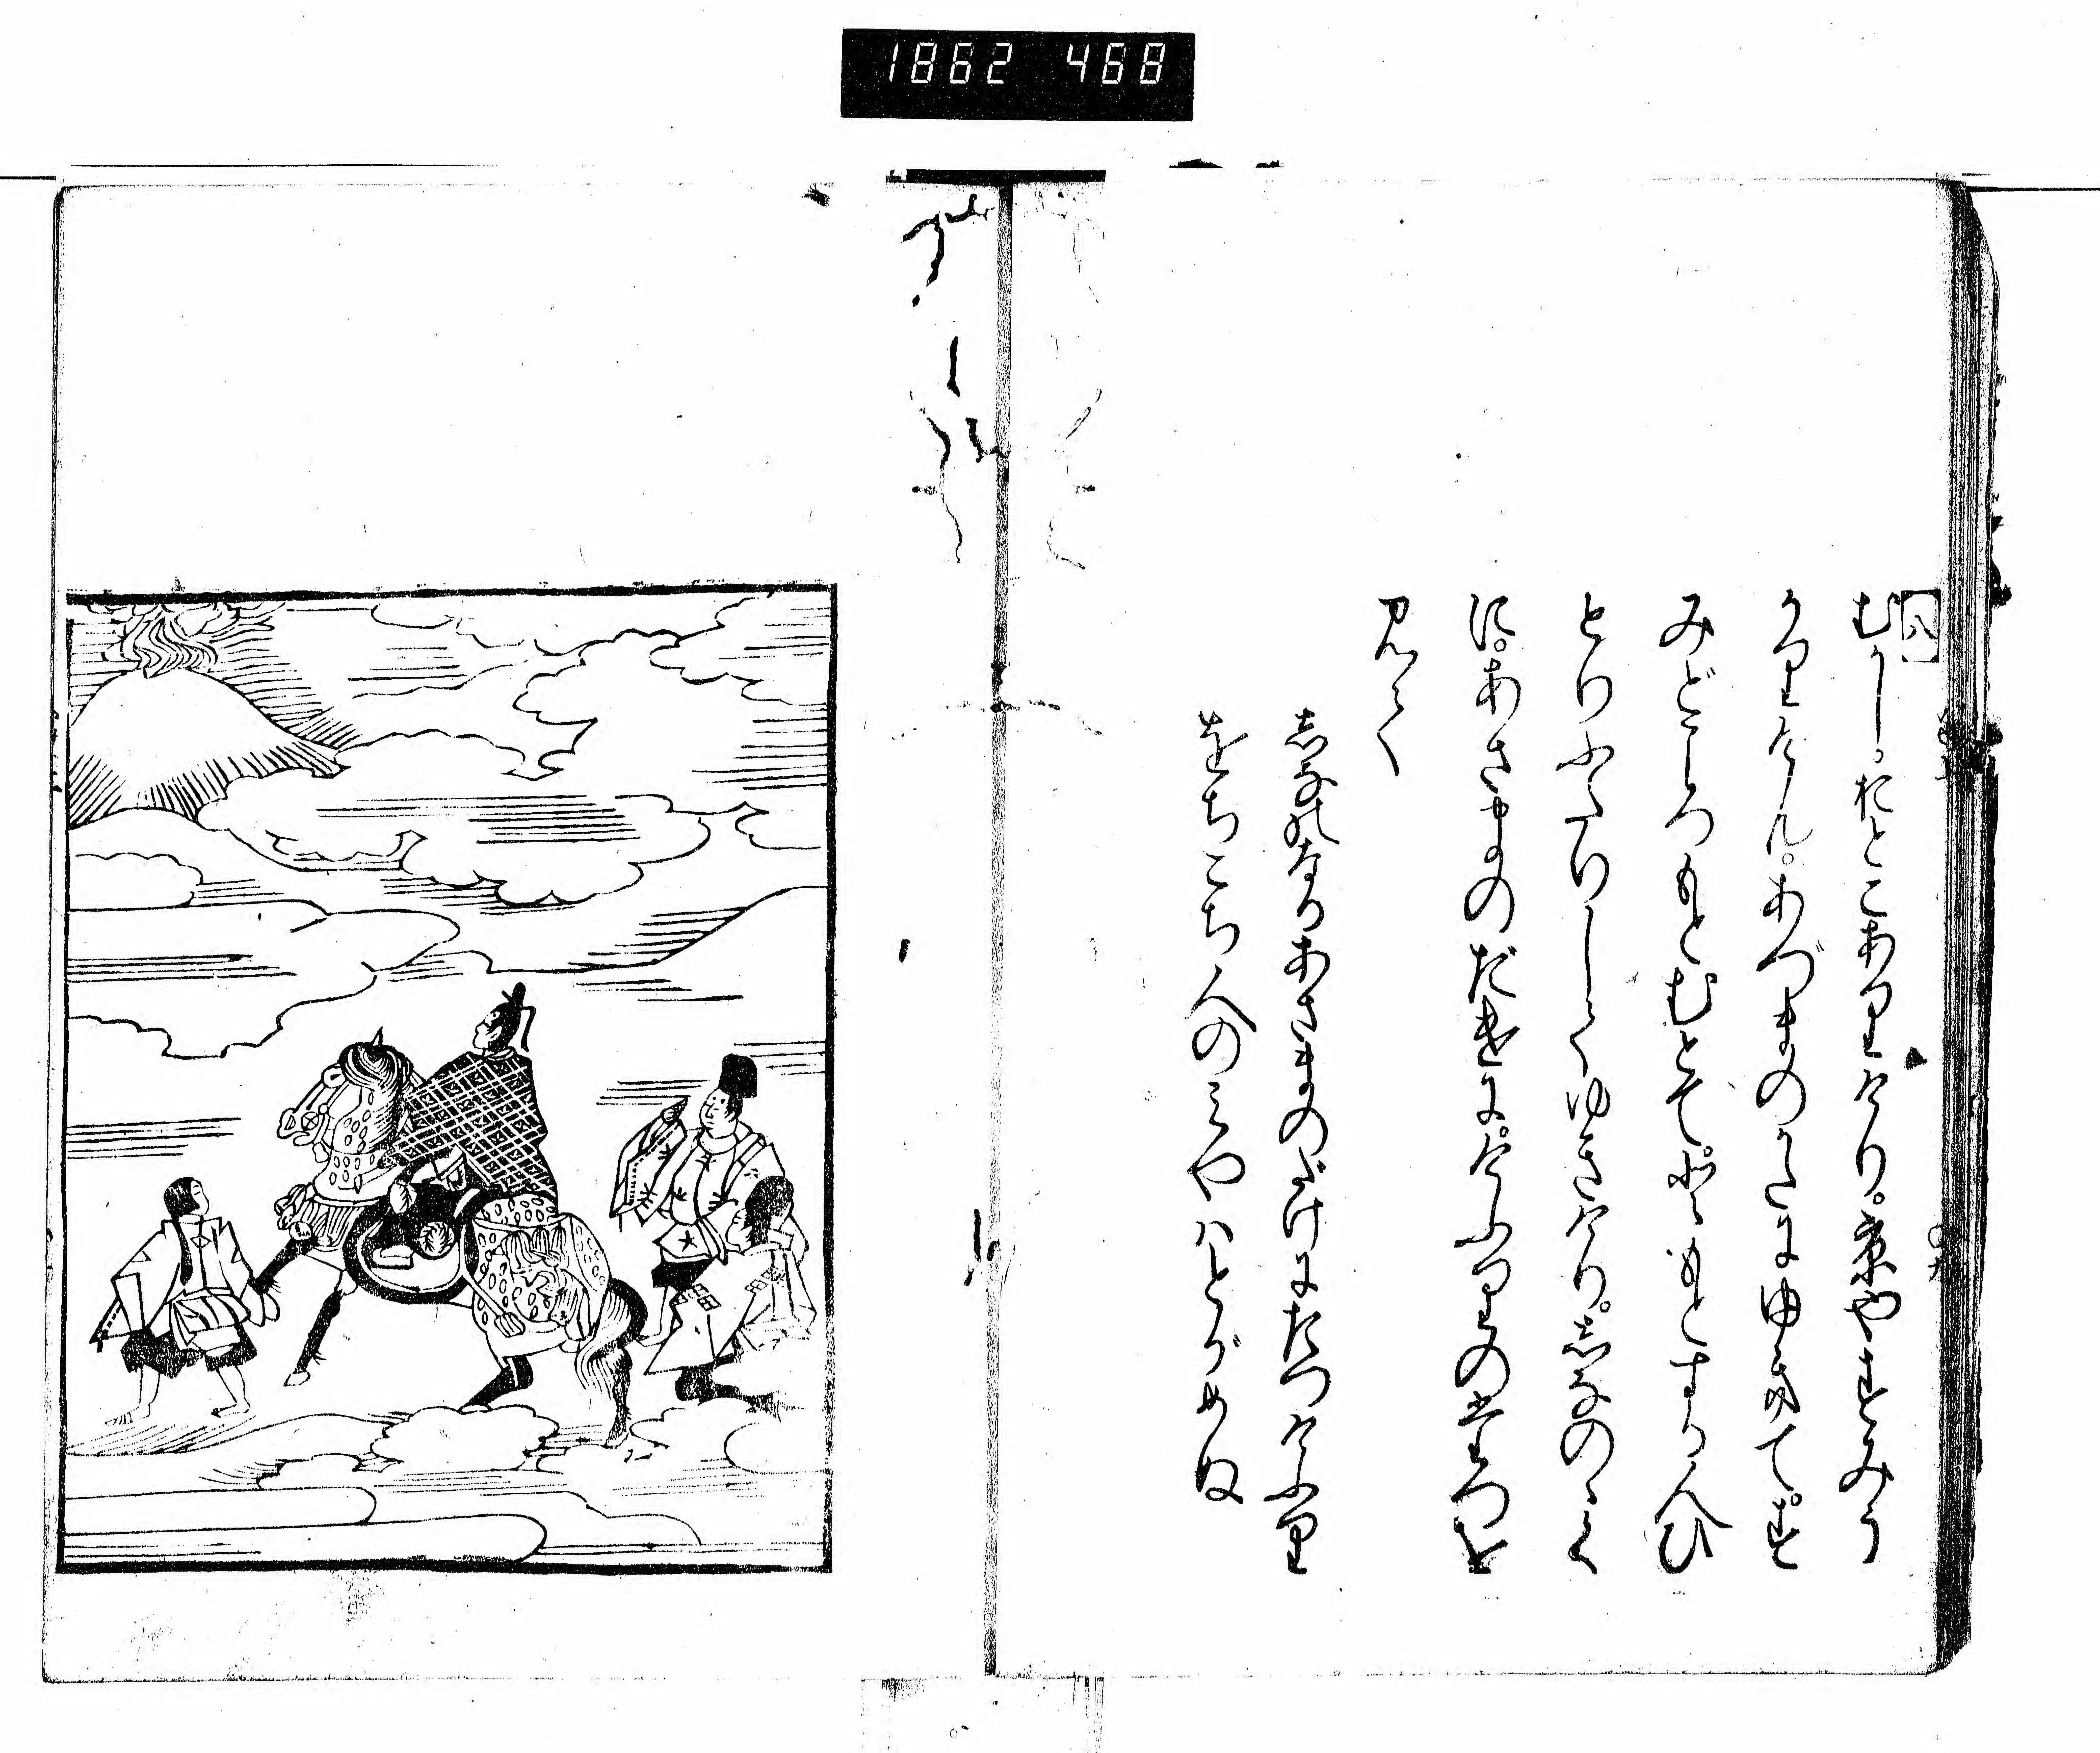 1862 468
八
むかし。おとこありけり。京やすみう
かりけん。あづまのかたにゆきて。す
み所もとむとて。ともとする人ひ
とりふたりしてゆきけり。志なのゝく
に。あさまのだけに。けふりのたつを
見て
志なのなるあさまのだけにたつけふり
をちこち人のみやハとがめぬ